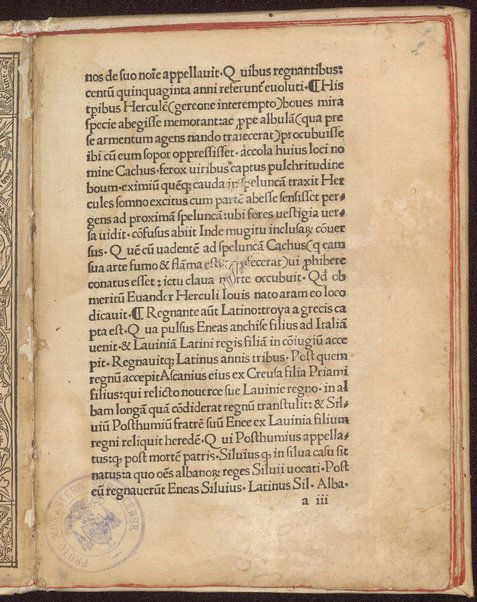 nos de suo noīe appellauit· Q uibus regnantibus:
centū quinquaginta anni referunt̃ euoluti· ¶ His
tp̃ibus Herculē (gereone interempto) boues mira
specie abegisse memorant: ac ꝓpe albulā (qua pre
se armentum agens nando traiecerat) procubuisse
ibi cū eum sopor oppressisset· accola huius loci no
mine Cachus· ferox uiribus captus pulchritudine
boum· eximiū quēq; cauda in speluncā traxit Her
cules somno excitus cum partē abesse sensisset per⸗
gens ad proximā speluncā: ubi fores uestigia uer⸗
sa uidit· cōfusus abiit Inde mugitu inclusaꝝ cōuer
sus· Q uē cū uadentē ad speluncā Cachus (q eam
sua arte fumo & flāma efecerat) ui ꝓhibere
conatus esset: ictu claua morte occubuit· Qđ ob
meritū Euander Herculi Iouis nato aram eo loco
dicauit· ¶ Regnante aūt Latino: troya a grecis ca
pta est· Q ua pulsus Eneas anchise filius ad Italiā
uenit· & Lauiniā Latini regis filiā in cōiugiū acce
pit· Regnauitq; Latinus annis tribus· Post quem
regnū accepit Ascanius eius ex Creusa filia Priami
filius: qui relicto nouerce sue Lauinie regno· in al
bam longā quā cōdiderat regnū transtulit: & Sil⸗
uiū Posthumiū fratrē suū Enee ex Lauinia filium
regni reliquit heredē· Q ui Posthumius appella⸗
tus: q; post mortē patris· Siluius q; in silua casu sit
natus: a quo oēs albanoꝝ reges Siluii uocati· Post
eū regnauerūt Eneas Siluius· Latinus Sil· Alba·
a iii